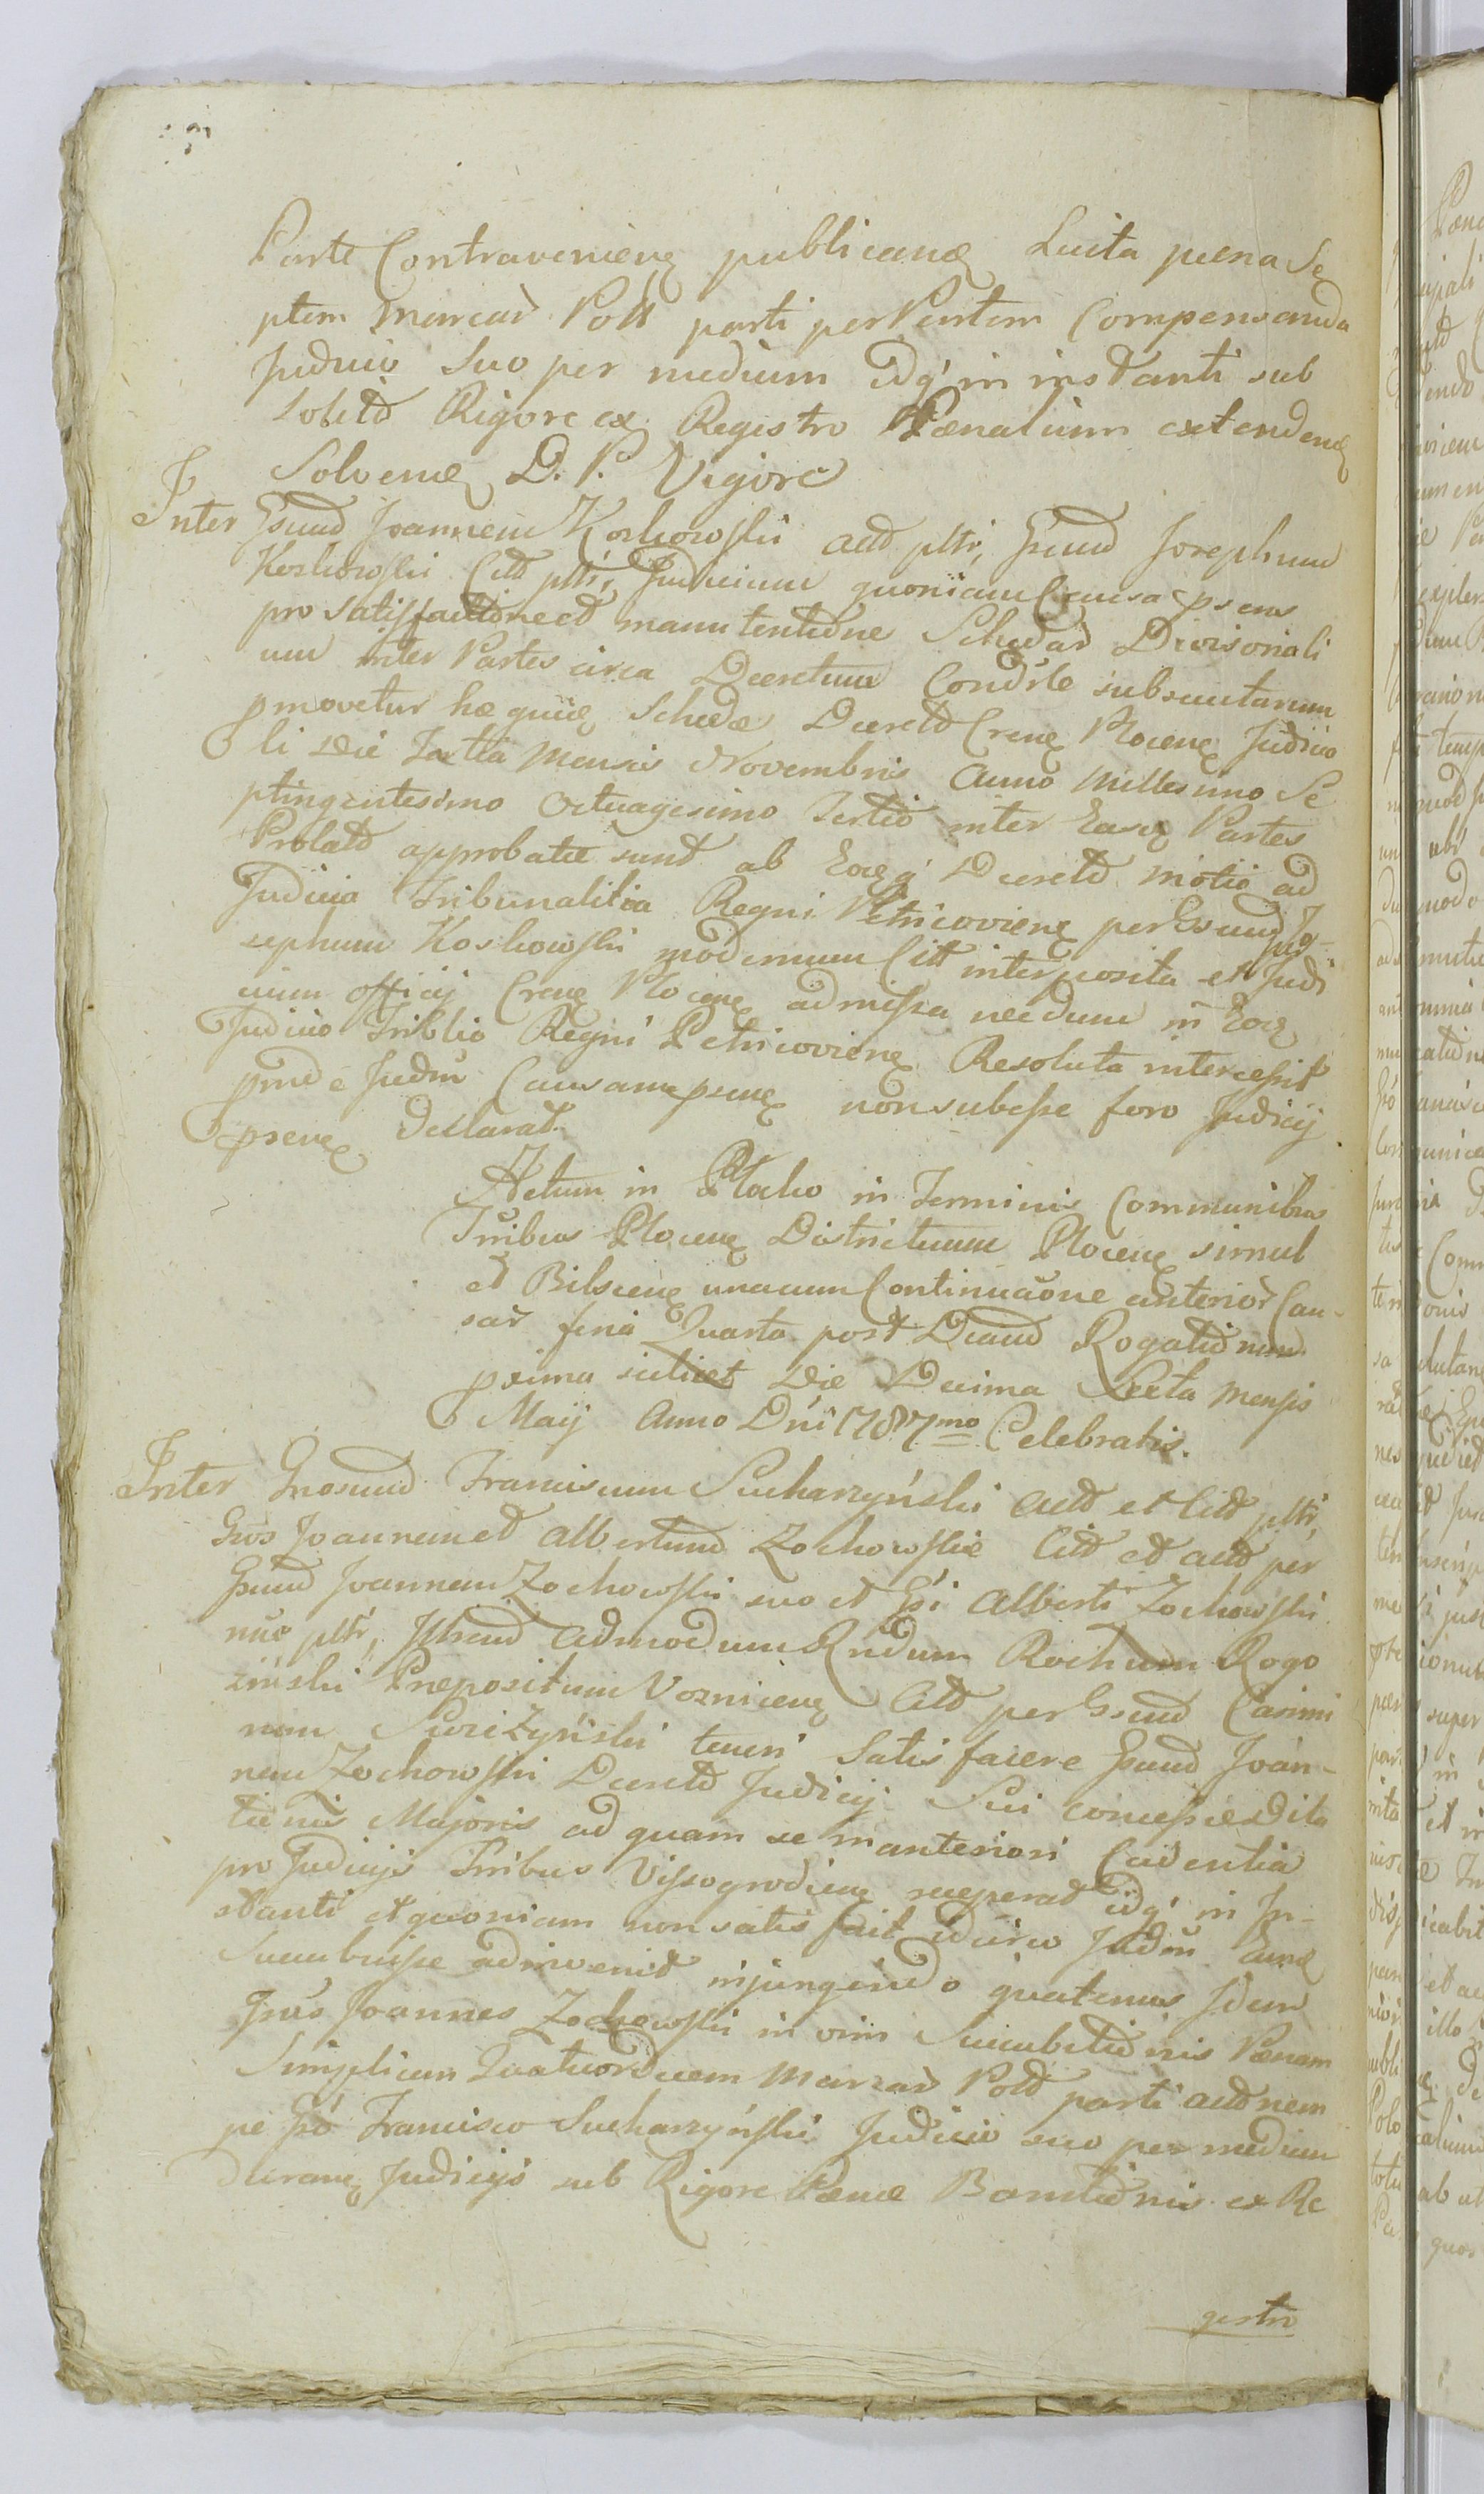 Parte Contravenienȩ publicanȩ Luita pœna Se
ptem Marcar̃ Poll parti per Ventem Compensanda
Judicio Suo per medium idq' in instanti sub
solito Rigore ex Registro Pœnalium extendenȩ
Solvenȩ D. P. Vigore
Inter Gsund Joannem Koskowski actt pltr, Gsund Josephum
Koskowski Citt pltr, Judicium quoniam Causa psens
pro satisfactione et manutentione Schedar̃ Divisionali
um inter Partes circa Decretum Condsle subsecutarum
promovetur hæ Schedæ Decreto Crenȩ Plocenȩ Judicia
li Die Mensis Novembris Anno Millesimo Se
ptingentesimo Octuagesimo Tertio inter Easȩ Partes
Prolato approbatæ sunt ab Eoȩq' Decreto motio ad
Judicia Tribunalitia Regni Petricovienȩ per Gsund Jo-
sephum Koskowski modernum Citt interposita et Judi
cium officij Crenȩ Plocenȩ admissa necdum in Eoȩ
Judicio Triblio Regni Petricovienȩ Resoluta intercessit
proinde Judm Causam psenȩ non subesse foro Judicij
psenȩ declarat.
Actum in Plocko in Terminis Communibus
Tribus Plocenȩ Districtuum Plocenȩ simul
et Bilscenȩ unacum Continuaõne anterior̃ Cau-
sar̃ feria Quarta post Dnicam Rogationum
proxima scilicet Die Decima Sexta Mensis
Maij Anno Dni 1787mo Celebratis.
Inter Gnosund Franciscum Sucharzyński Actt et Citt pltr,
Gsos Joannem et Albertum Zochowskie Citt et Actt per
Gsund Joannem Zochowski suo et Gsi Alberti Zochowski
nne pltr, Illrend Admodum Rndum Rochum Rogo
ziński Prepositum Voznicenȩ Citt per Gsund Casimi
rum Swiżyński teneri Satisfacere Gsund Joan-
nem Zochowski Decreto Judicij Sui concessæ Dila
tionis Majoris ad quam se in anteriori Cadentia
pro Judicijs Tribus Vissogrodienȩ receperat idq' in In-
stanti et quoniam non satis fait idcirco Judm Eunȩ
Succubuisse adinvenit injungendo quatenus Idem
Gsus Joannes Zochowski in vim Succubitionis Pœnam
Simplicem Quatuordecem Marcar̃ Poll parti actt nem
pe Gso Francisco Sucharzyński Judicio suo per medium
Duranȩ Judicijs sub Rigore Pœnæ Bannitionis ex Re
gestro